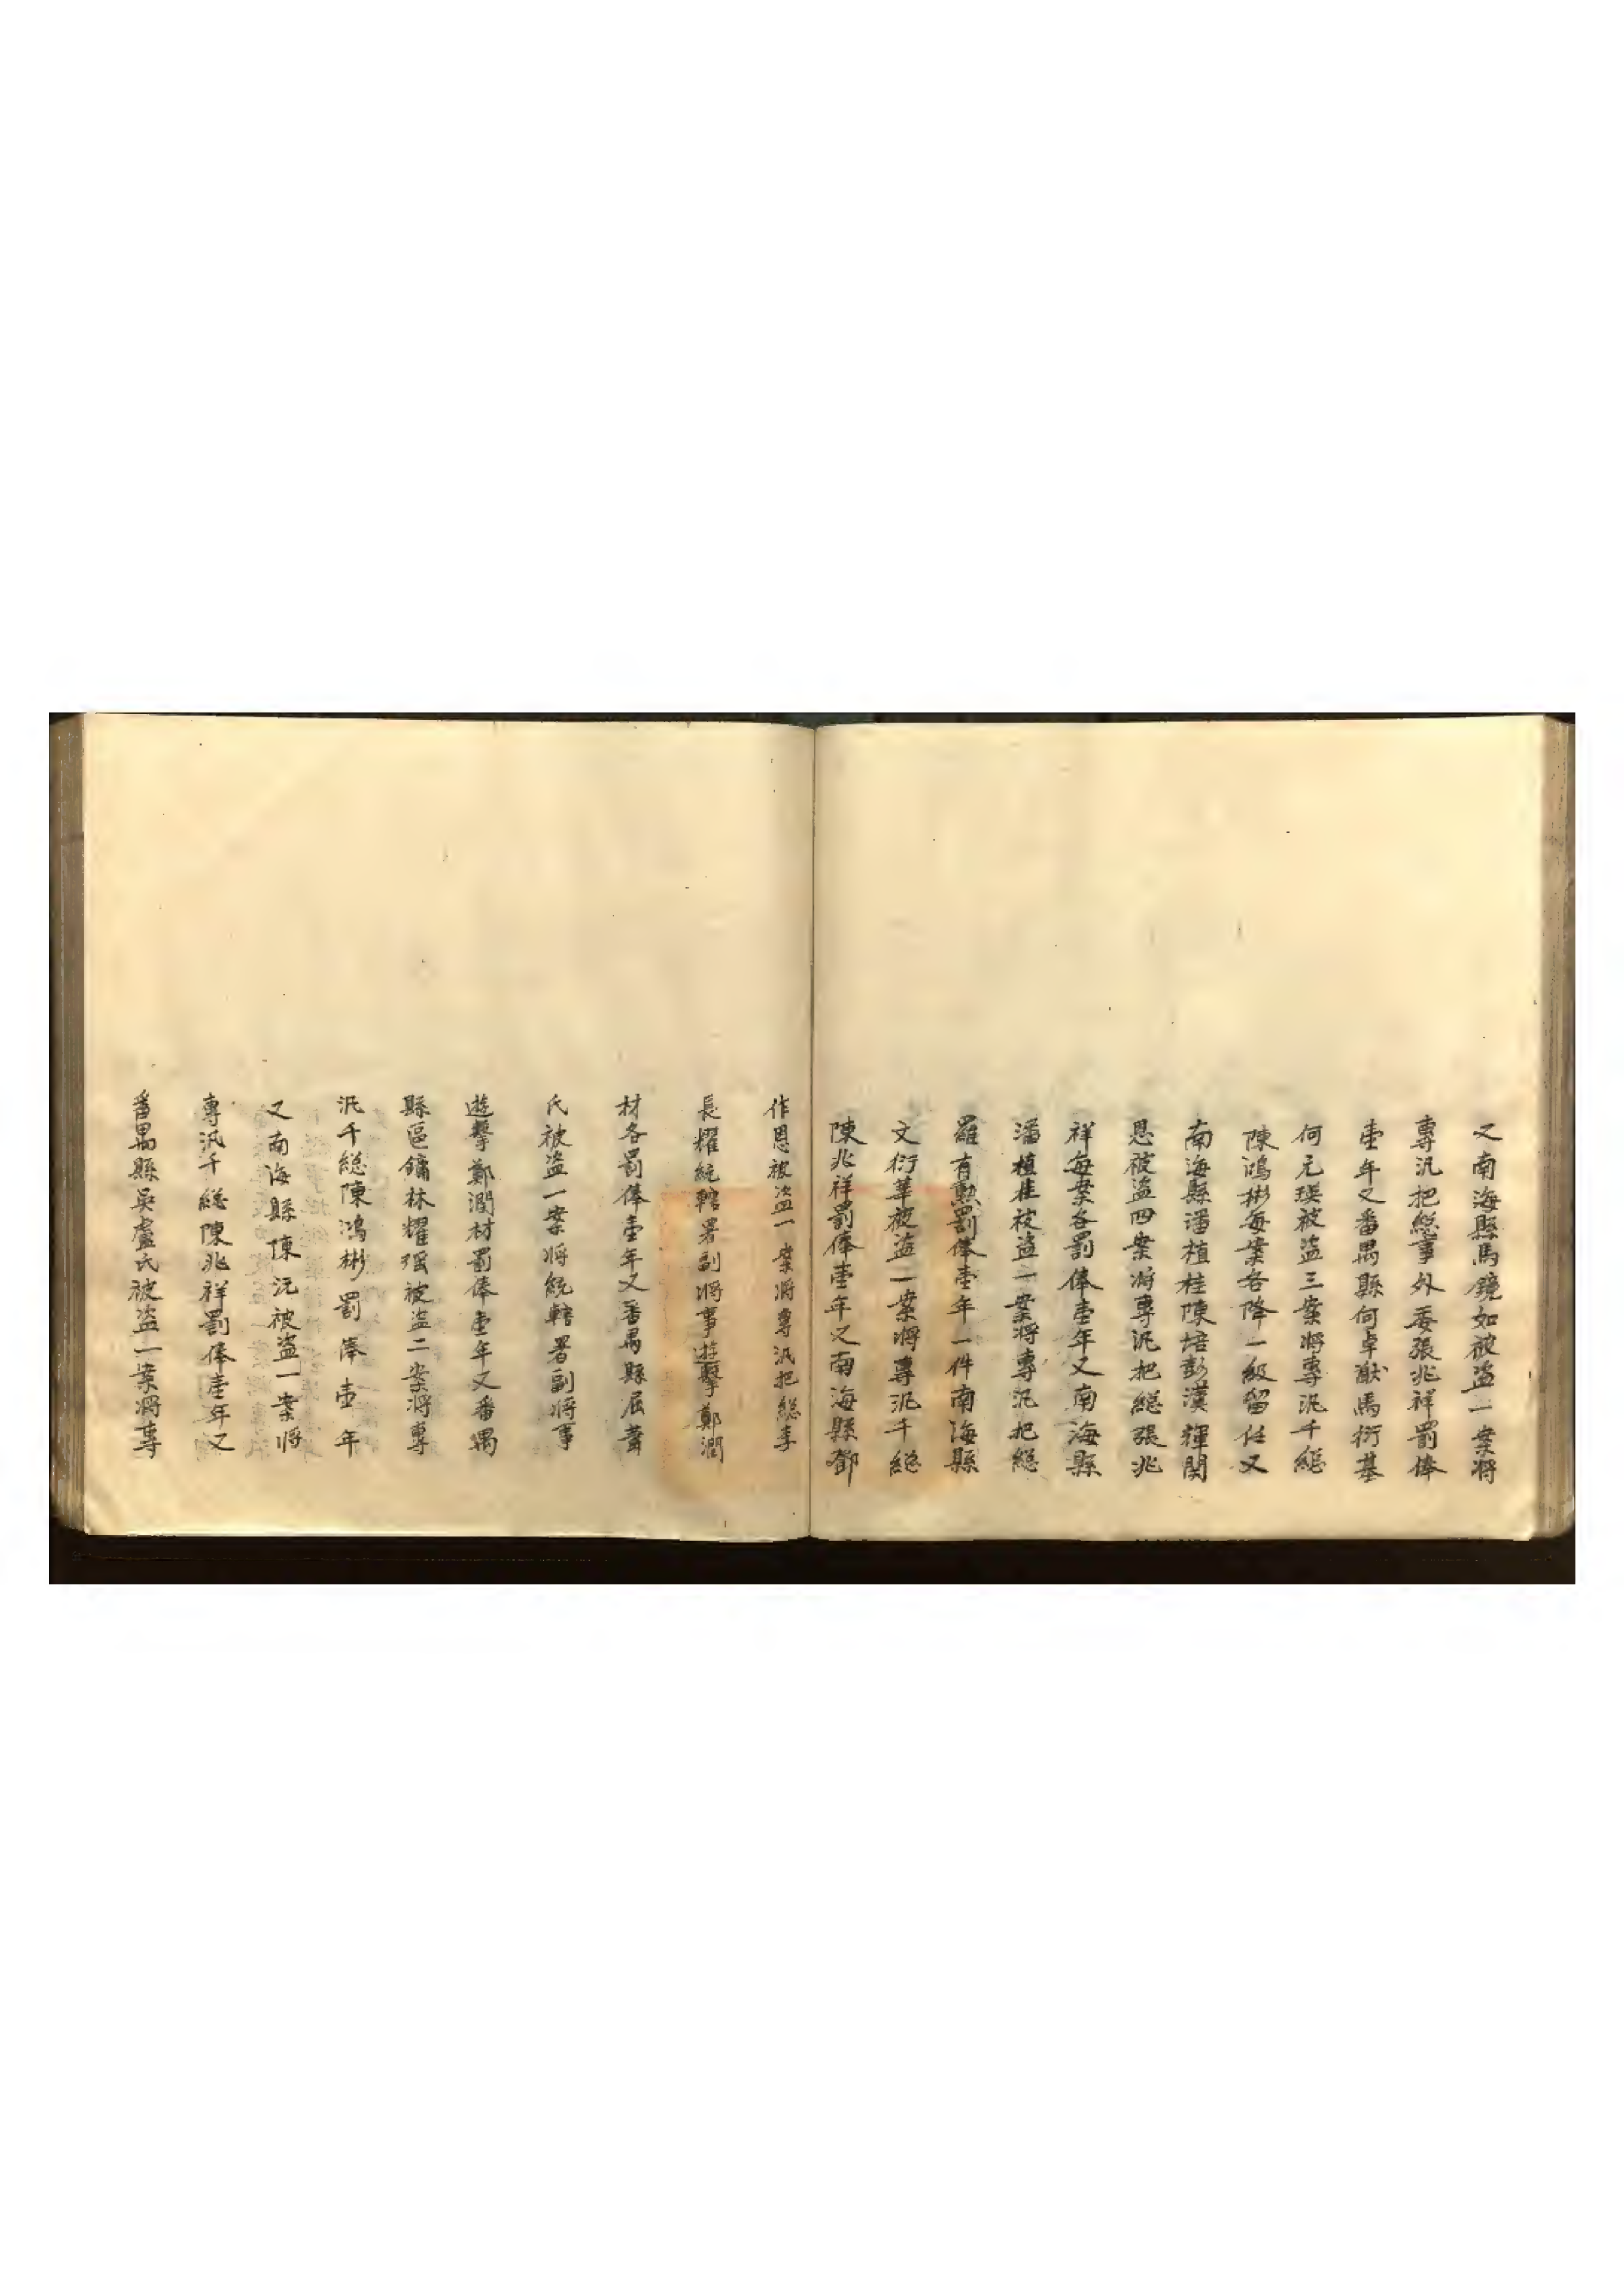 又南海縣馬鏡如被盗一案将
專汛把總事外委張兆祥罰俸
壹年又番禺縣何卓猷馬衍基
何元瑛被盗三案將專汛千總
陳鴻彬每案各降一級留任又
南海縣潘植桂陳培彭漢輝関
恩被盗四案將專汛把總張兆
祥每案各罰俸壹年又南海縣
潘植桂被盗一案將專汛把總
羅有勲罰俸壹年一件南海縣
文衍華被盗一案將專汛千總
陳兆祥罰俸壹年又南海縣鄧
作恩被盗一案將專汛把總李
長耀統轄署副將事遊擊鄭潤
材各罰俸壹年又番禺縣屈蕭
氏被盗一案將統轄署副將事
遊擊鄭潤材罰俸壹年又番禺
縣區鏞林耀被盗二案將專
汛千總陳鴻彬罰俸壹年
又南海縣陳沅被盗一案將
專汛千總陳兆祥罰俸壹年又
番禺縣吳盧氏被盗一案將專